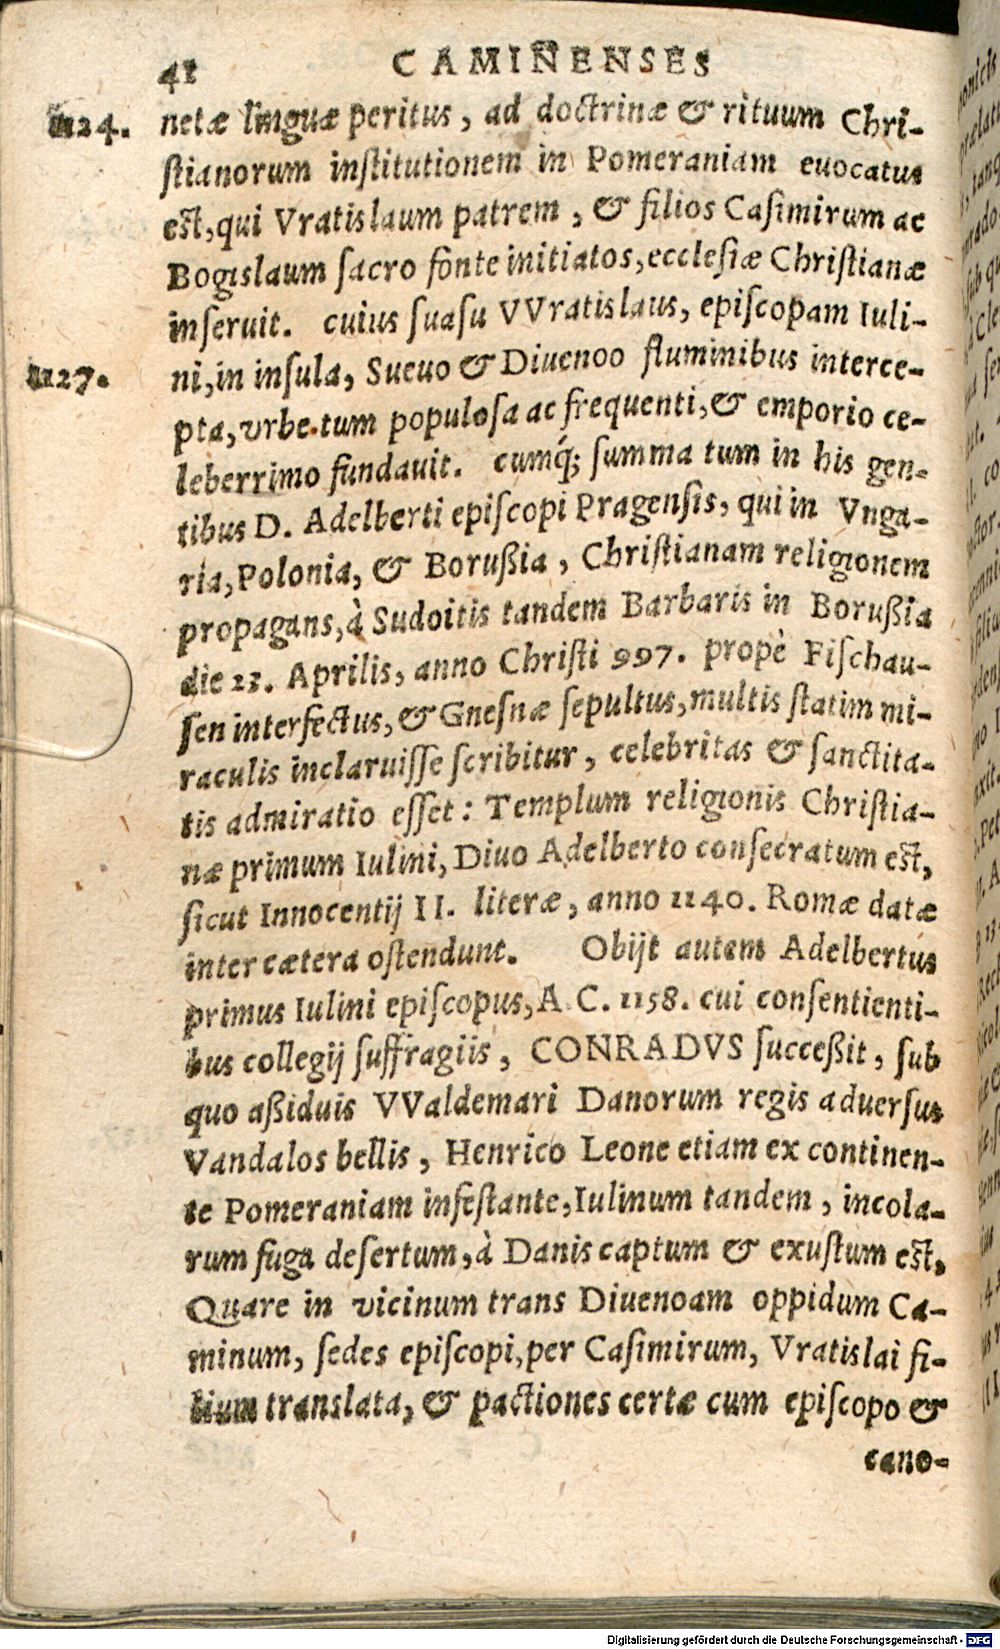 41 CAMINENSES
1124. netæ linguæ peritus, ad doctrinæ & rituum Chri-
ſtianorum inſtitutionem in Pomeraniam euocatus
eſt, qui Vratislaum patrem, & filios Caſimirum ac
Bogislaum ſacro fonte initiatos, eccleſiæ Chriſtianæ
inſeruit. cuius ſuaſu VVratislaus, epiſcopam Iuli-
1127. ni, in inſula, Sueuo & Diuenoo fluminibus interce-
pta, vrbe tum populoſa ac frequenti, & emporio ce-
leberrimo fundauit. cumq́; ſumma tum in his gen-
tibus D. Adelberti epiſcopi Pragenſis, qui in Vnga-
ria, Polonia, & Borußia, Chriſtianam religionem
propagans, à Sudoitis tandem Barbaris in Borußia
die 23. Aprilis, anno Chriſti 997. propè Fiſchau-
ſen interfectus, & Gneſnæ ſepultus, multis ſtatim mi-
raculis inclaruiſſe ſcribitur, celebritas & ſanctita-
tis admiratio eſſet: Templum religionis Chriſtia-
næ primum Iulini, Diuo Adelberto conſecratum eſt,
ſicut Innocentij II. literæ, anno 1140. Romæ datæ
inter cætera oſtendunt. Obijt autem Adelbertus
primus Iulini epiſcopus, A C. 1158. cui conſentienti-
bus collegij ſuffragiis, CONRADVS ſucceßit, ſub
quo aßiduis VValdemari Danorum regis aduerſus
Vandalos bellis, Henrico Leone etiam ex continen-
te Pomeraniam infeſtante, Iulinum tandem, incola-
rum fuga deſertum, à Danis captum & exuſtum eſt,
Quare in vicinum trans Diuenoam oppidum Ca-
minum, ſedes epiſcopi, per Caſimirum, Vratislai fi-
lium translata, & pactiones certæ cum epiſcopo &
cano-
Digitalisierung gefördert durch die Deutsche Forschungsgemeinschaft - DFG